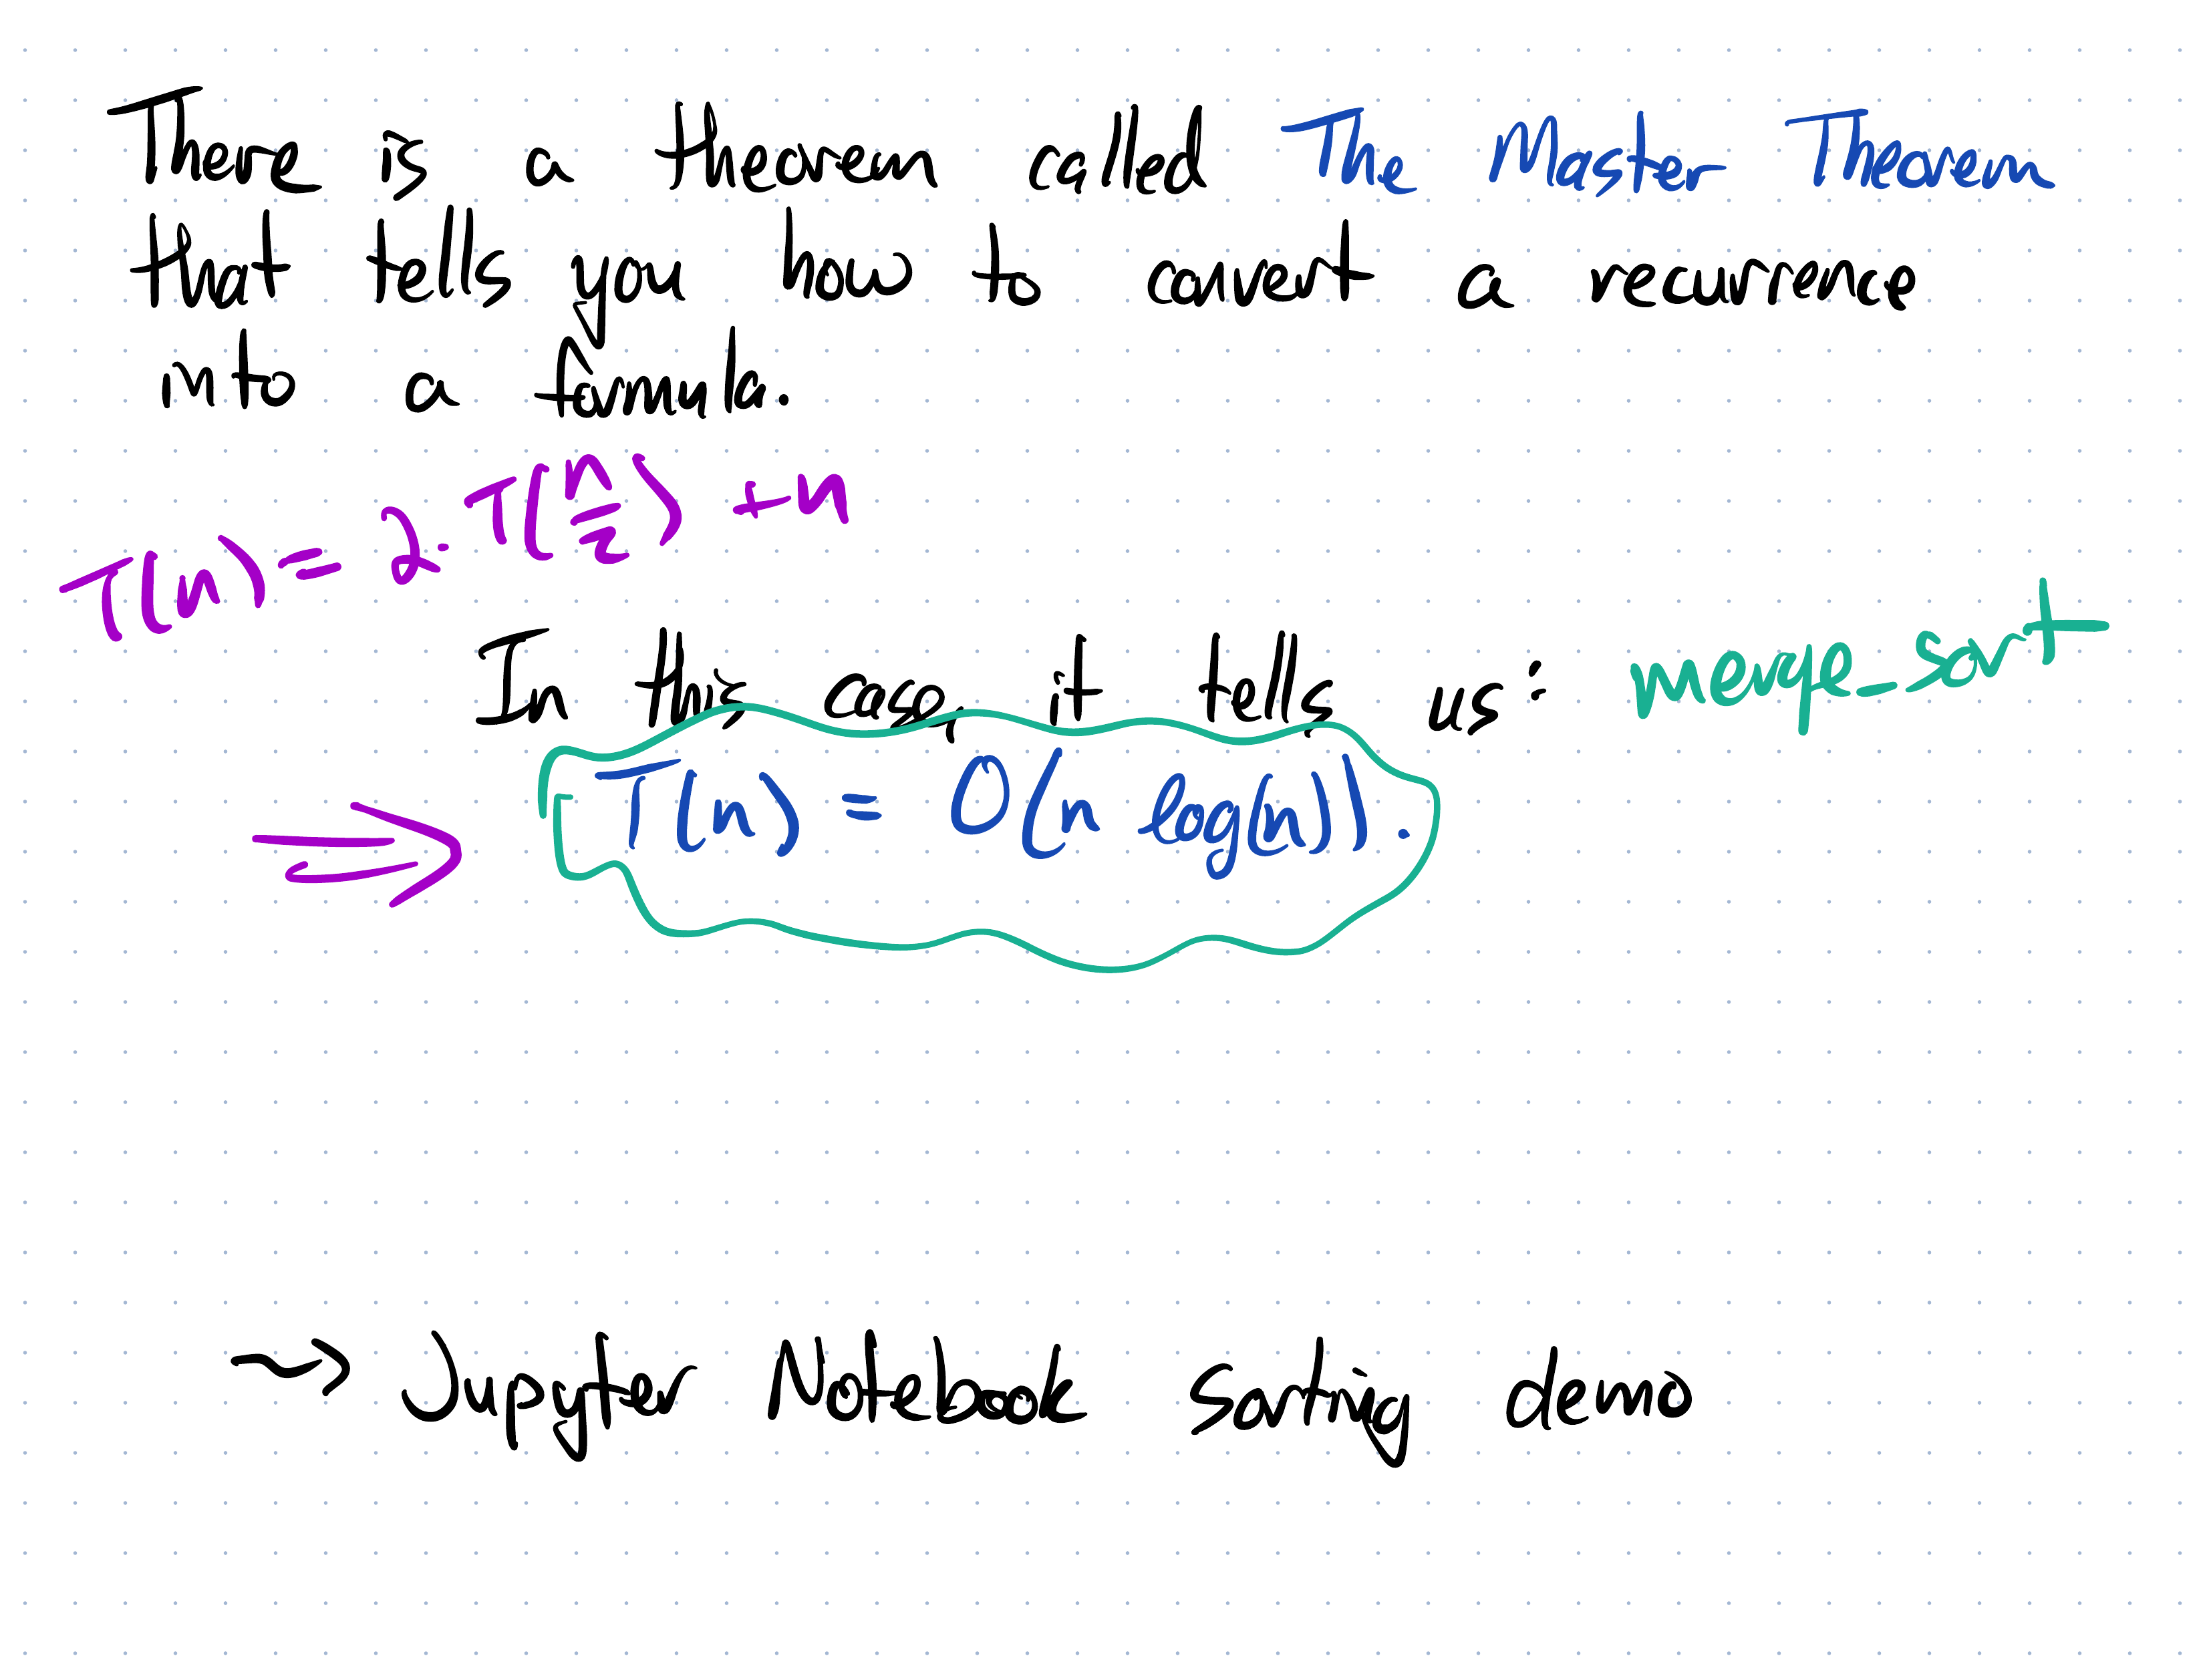 There is a theorem called The Master Theorem
that tells you how to convert a recurrence
into a formula.
T(n) = 2·T(n/2) + n
In this case, it tells us: merge_sort
⇒ T(n) = O(n log(n)).
→ Jupyter Notebook sorting demo